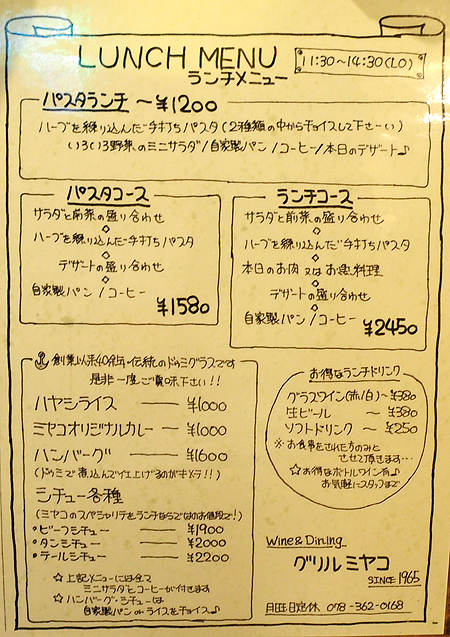 LUNCH MENU
ランチメニュー
11:30~14:30(LO)
パスタランチ ~¥1200
ハーブを練り込んだ手打ちパスタ(2種類の中からチョイスして下さーい)
いろいろ野菜のミニサラダ/自家製パン/コーヒー/本日のデザート♪
パスタコース
サラダと前菜の盛り合わせ
◇
ハーブを練り込んだ手打ちパスタ
◇
デザートの盛り合わせ
◇
自家製パン/コーヒー
¥1580
ランチコース
サラダと前菜の盛り合わせ
◇
ハーブを練り込んだ手打ちパスタ
◇
本日のお肉又はお魚料理
◇
デザートの盛り合わせ
◇
自家製パン/コーヒー
¥2450
創業以来40余年、伝統のドゥミグラスです
是非一度ご賞味下さい!!
ハヤシライス ¥1000
ミヤコオリジナルカレー ¥1000
ハンバーグ ¥1600
(ドゥミで煮込んで仕上げるのがキメテ!!)
シチュー各種
(ミヤコのスペシャリテをランチならではのお値段で!)
・ビーフシチュー ¥1900
・タンシチュー ¥2000
・テールシチュー ¥2200
☆上記メニューには全て
ミニサラダとコーヒーが付きます
☆ハンバーグ・シチューは
自家製パン or ライスをチョイス♪
お得なランチドリンク
グラスワイン(赤/白)~¥380
生ビール ~¥380
ソフトドリンク ~¥250
※お食事をされた方のみと
させて頂きます…
☆お得なボトルワイン有♪
お気軽にスタッフまで
Wine & Dining
グリル ミヤコ
SINCE 1965
月曜日定休 078-362-0168